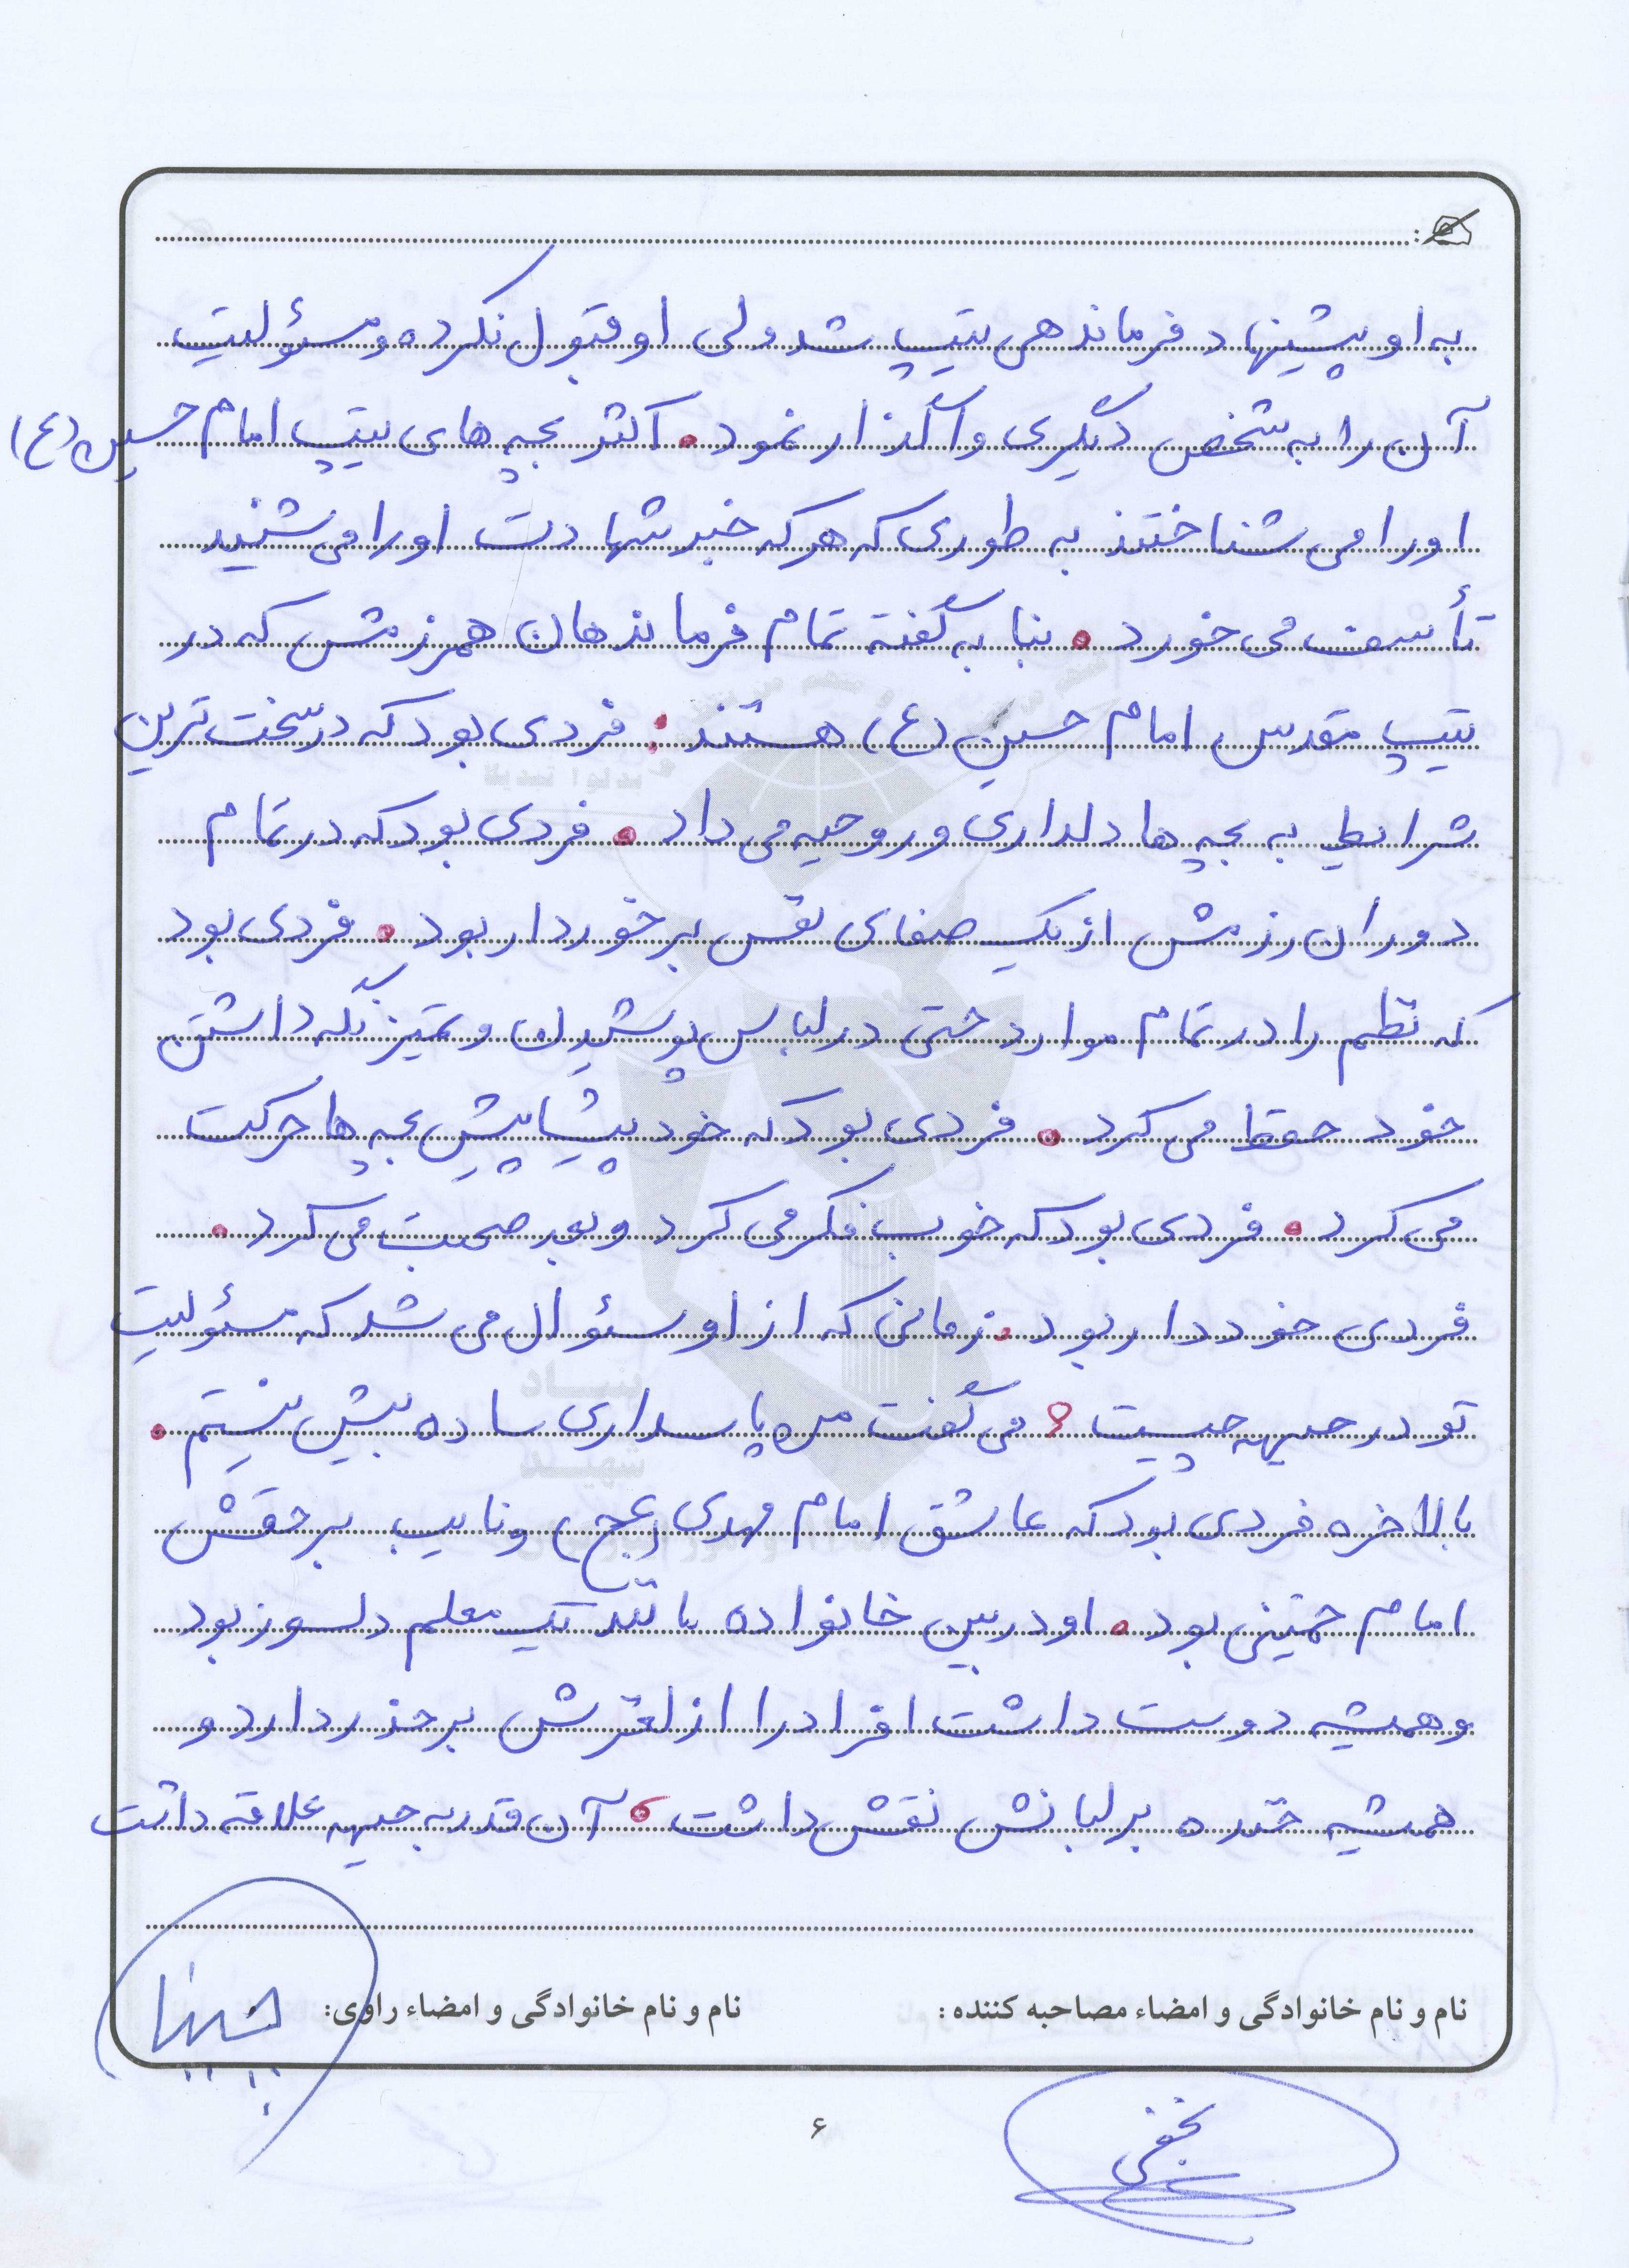 به او پیشنهاد فرماندهی تیپ شد ولی او قبول نکرده و مسئولیت
آن را به شخص دیگری واگذار نمود. اکثر بچه های تیپ امام حسین (ع)
او را می شناختند به طوری که هر که خبر شهادت او را می شنید
تأسف می خورد. بنا به گفته تمام فرماندهان همرزمش که در
تیپ مقدس امام حسین (ع) هستند: فردی بود که در سخت ترین
شرایط به بچه ها دلداری و روحیه می داد. فردی بود که در تمام
دوران رزمش از یک صفای نفس برخوردار بود. فردی بود
که نظم را در تمام موارد حتی در لباس پوشیدن و تمیز نگه داشتن
خود حفظ می کرد. فردی بود که خود پیشاپیش بچه ها حرکت
می کرد. فردی بود که خوب فکر می کرد و بعد صحبت می کرد.
فردی خوددار بود. زمانی که از او سئوال می شد که مسئولیت
تو در جبهه چیست؟ می گفت من پاسداری ساده بیش نیستم.
بالاخره فردی بود که عاشق امام مهدی (عج) و نایب برحقش
امام خمینی بود. او در بین خانواده مانند یک معلم دلسوز بود
و همیشه دوست داشت افراد را از لغزش برحذر دارد و
همیشه خنده بر لبانش نقش داشت، آن قدر به جبهه علاقه داشت
نام و نام خانوادگی و امضاء مصاحبه کننده: نام و نام خانوادگی و امضاء راوی:
نجفی
۶